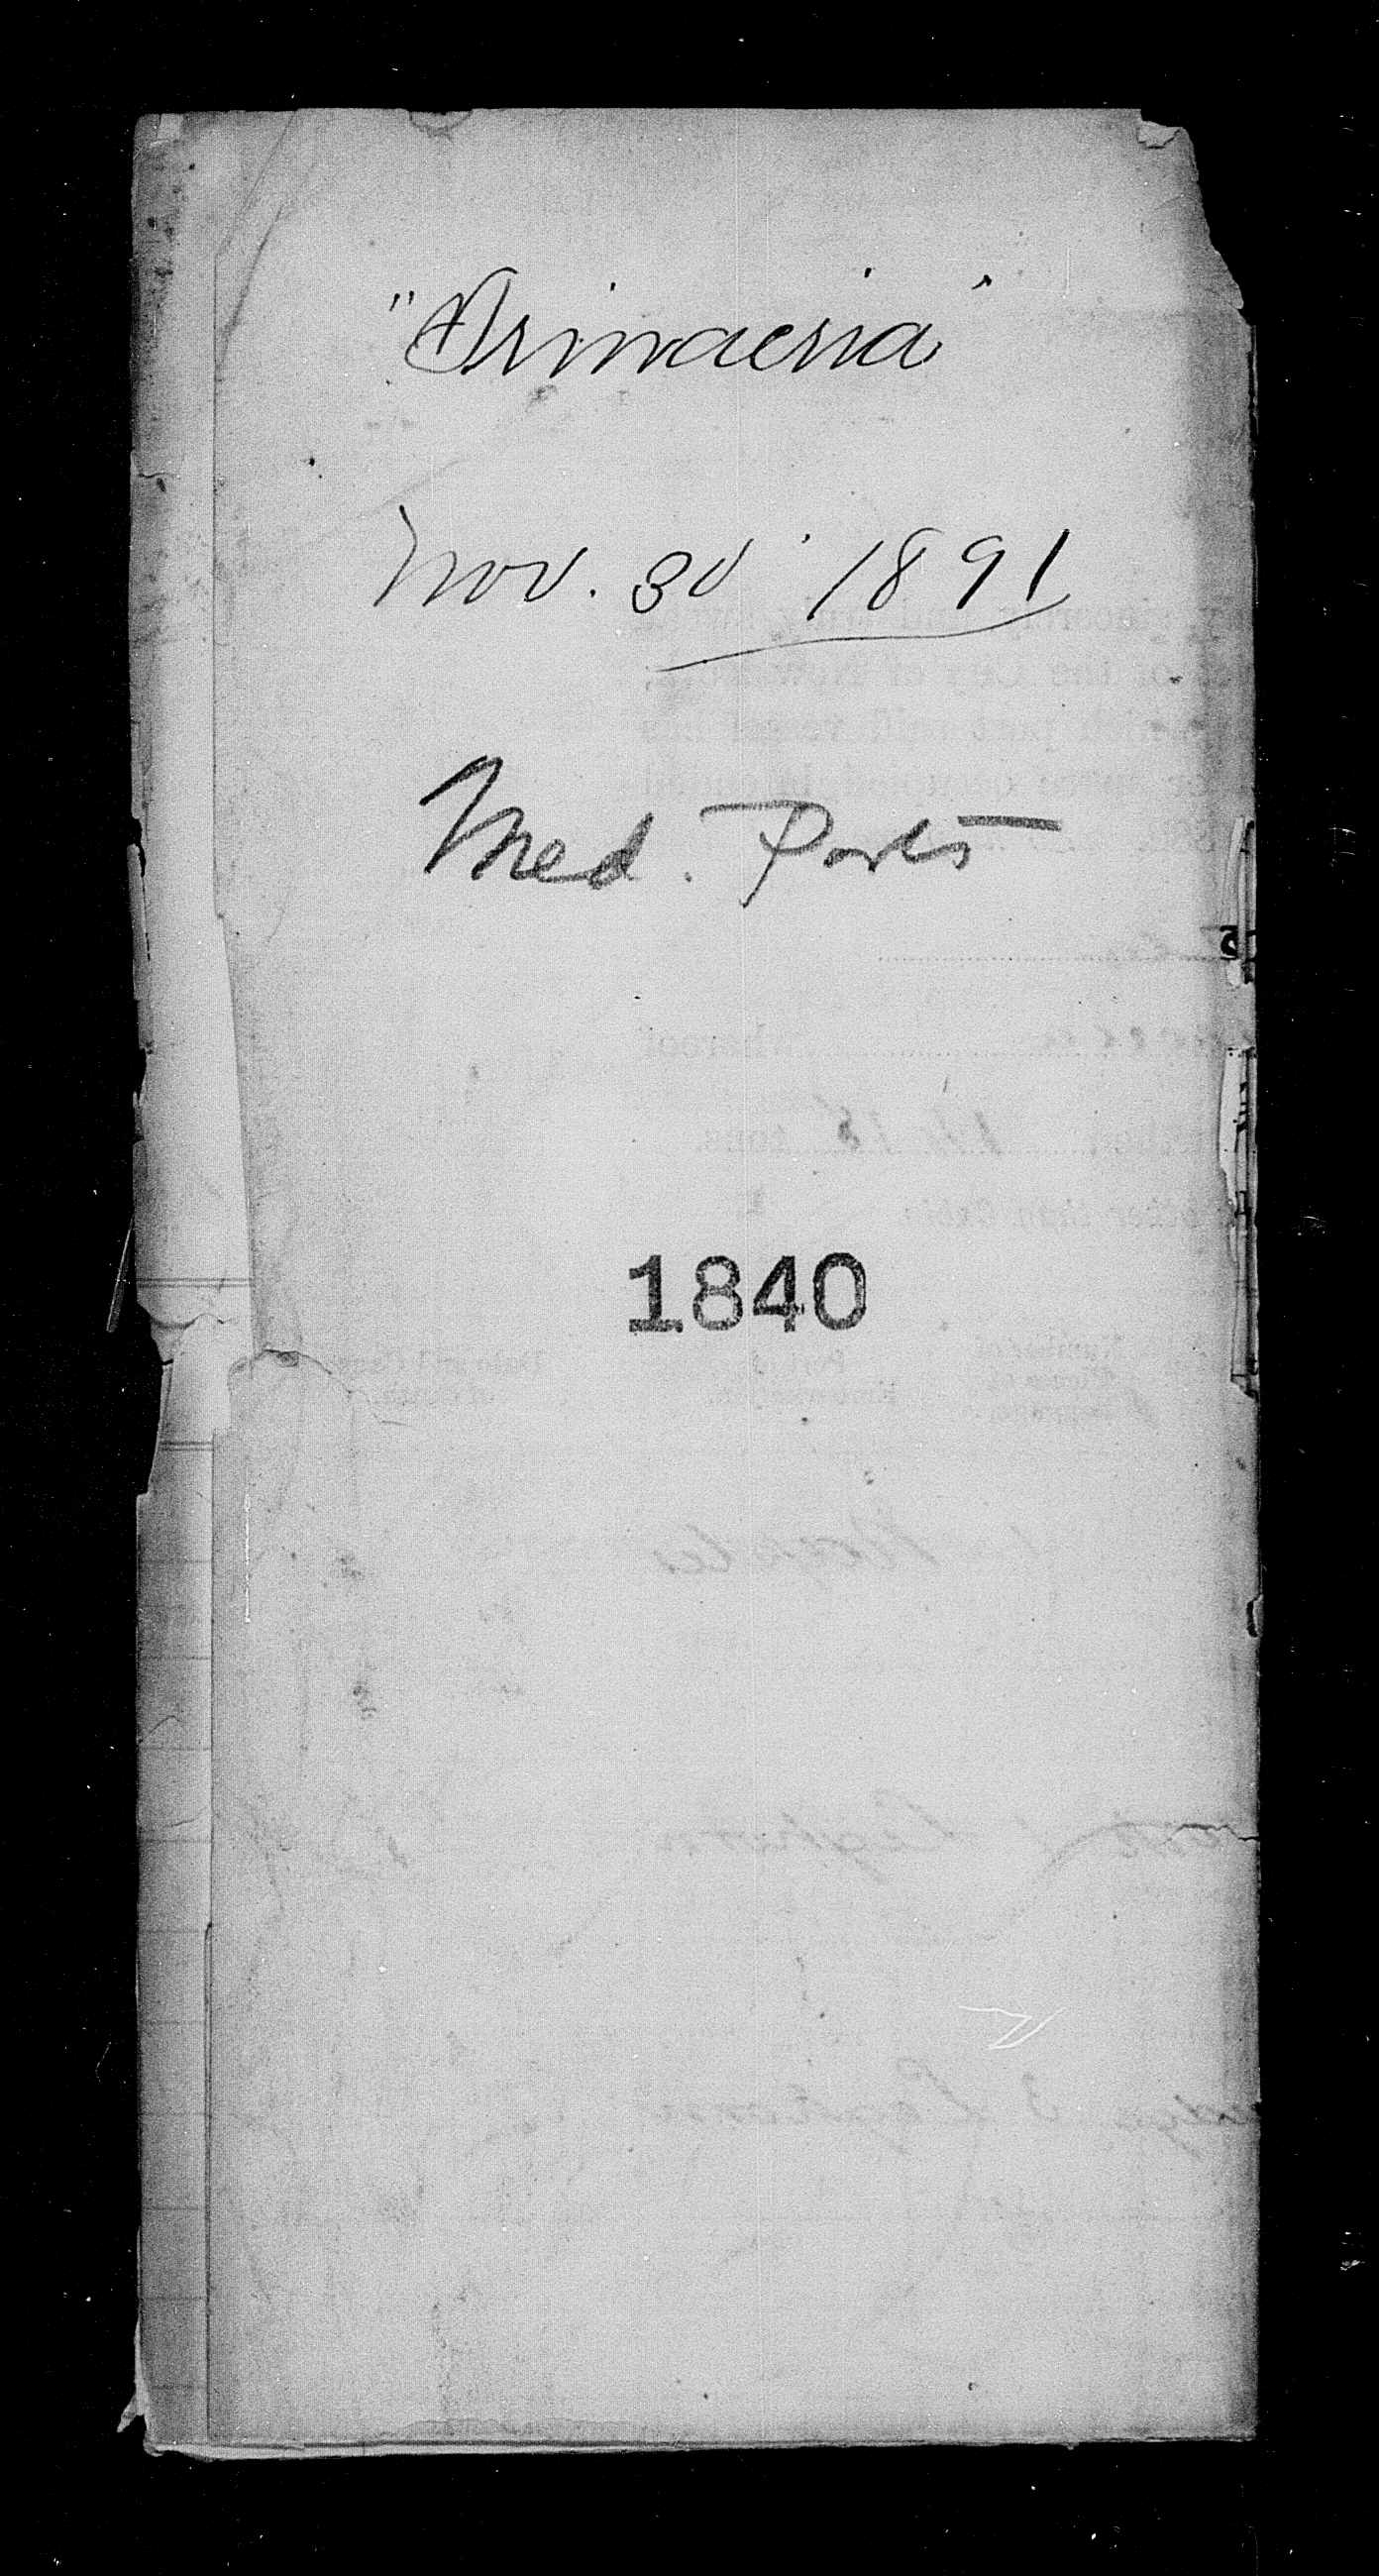 "Trinacria"
Nov. 30 1891
Med. Ports
1840